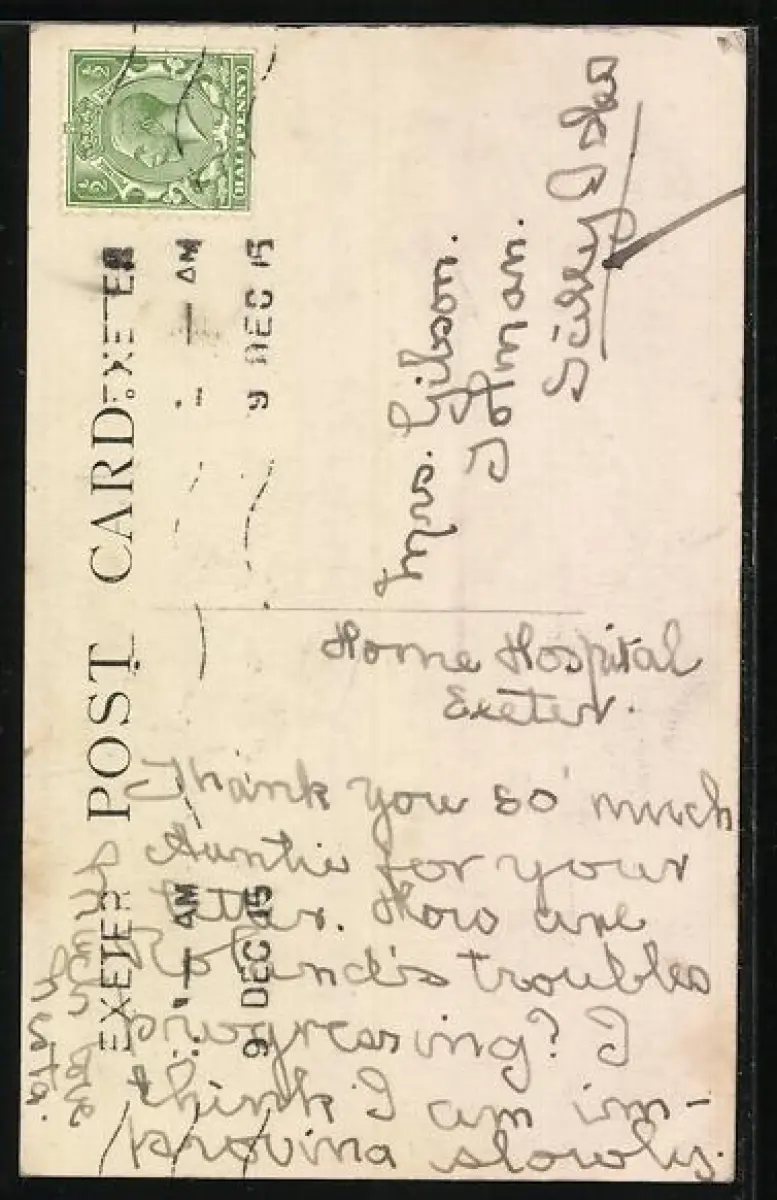 ½ ½
HALFPENNY
POST CARD
EXETER
AM
9 DEC 15
EXETER
AM
9 DEC 15
Mrs. Gibson.
Tolman.
Scilly Isles
Home Hospital
Exeter.
Thank you so much
Auntie for your
letter. How are
Roland's troubles
progressing? I
think I am im-
proving slowly.
bye